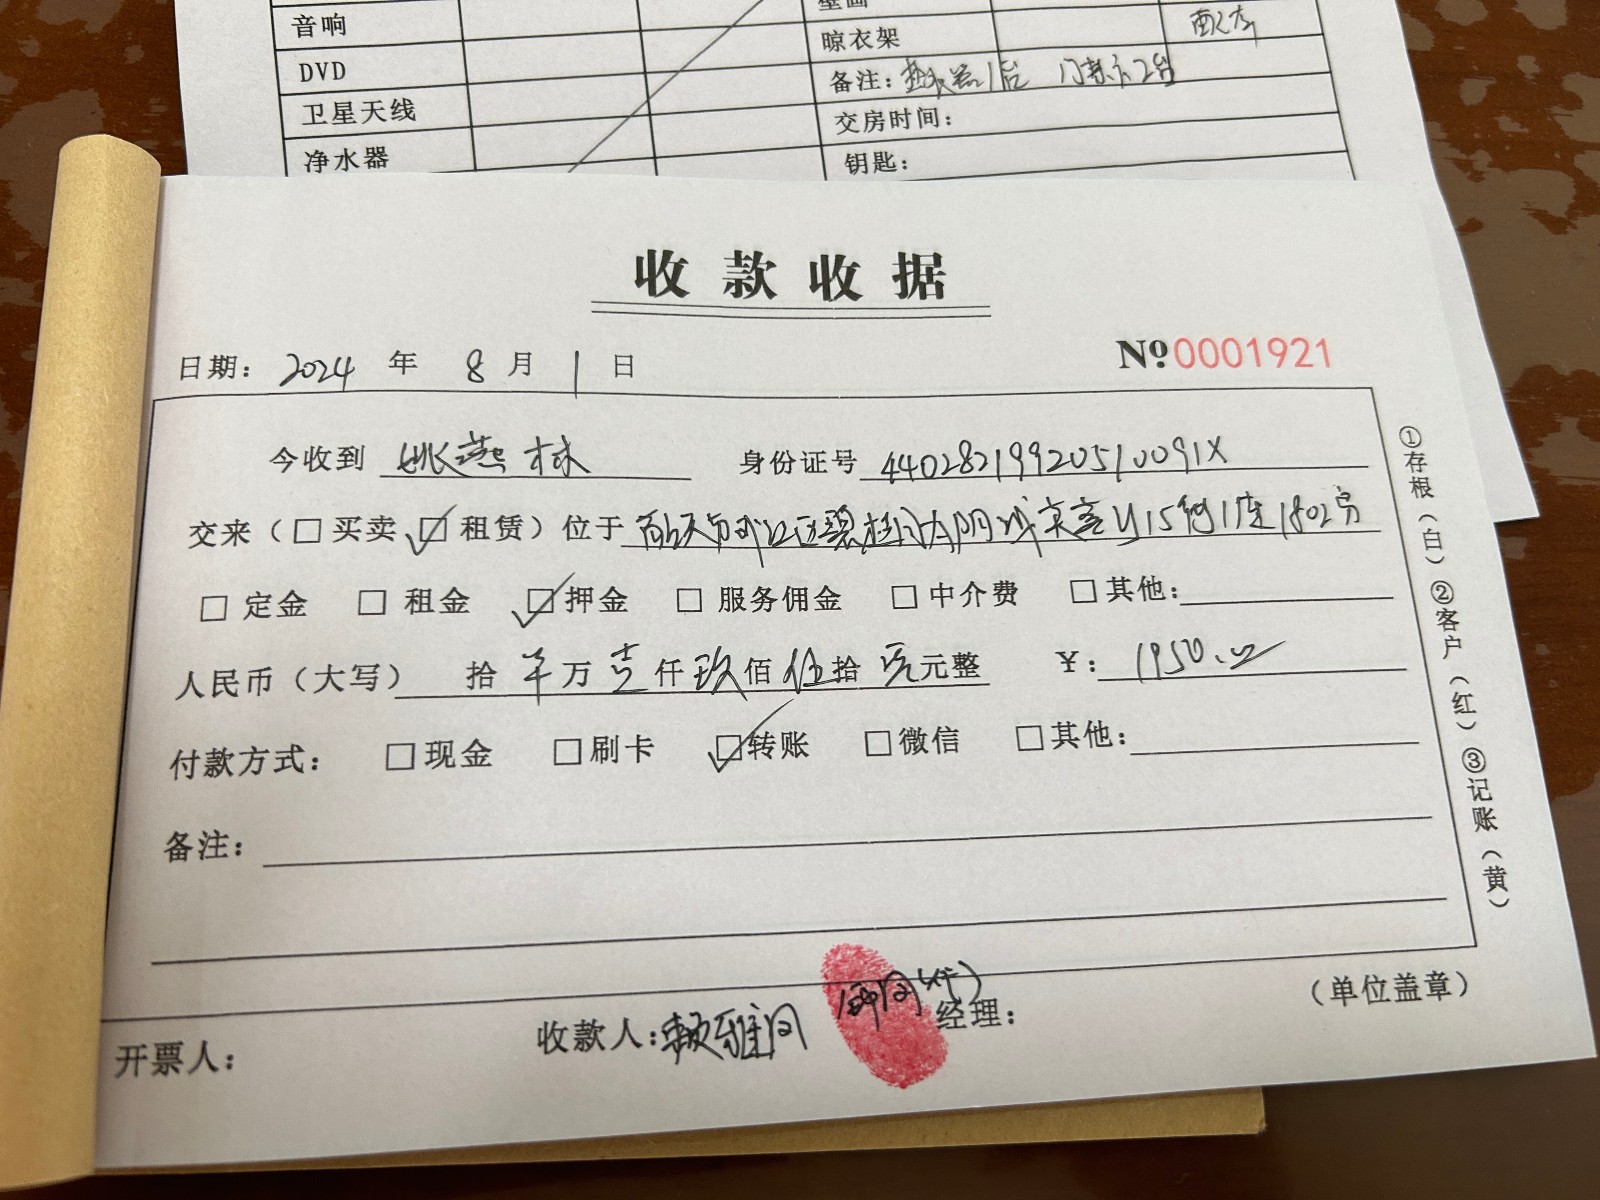 音响
DVD
卫星天线
净水器
壁画
晾衣架
备注: 热水器1台 门禁卡2台
交房时间:
钥匙:
收款收据
日期: 2024 年 8 月 1 日
№0001921
今收到 姚燕林 身份证号 44028219920510091X
交来(□买卖 ☑租赁)位于 碧桂园太阳城 15街1座1802房
□定金 □租金 ☑押金 □服务佣金 □中介费 □其他:
人民币(大写) 拾 羊万 壹仟 玖佰 伍拾 元整 ¥: 1950.00
付款方式: □现金 □刷卡 ☑转账 □微信 □其他:
备注:
开票人: 收款人: 赖雅 (代) 经理: (单位盖章)
①存根(白)②客户(红)③记账(黄)